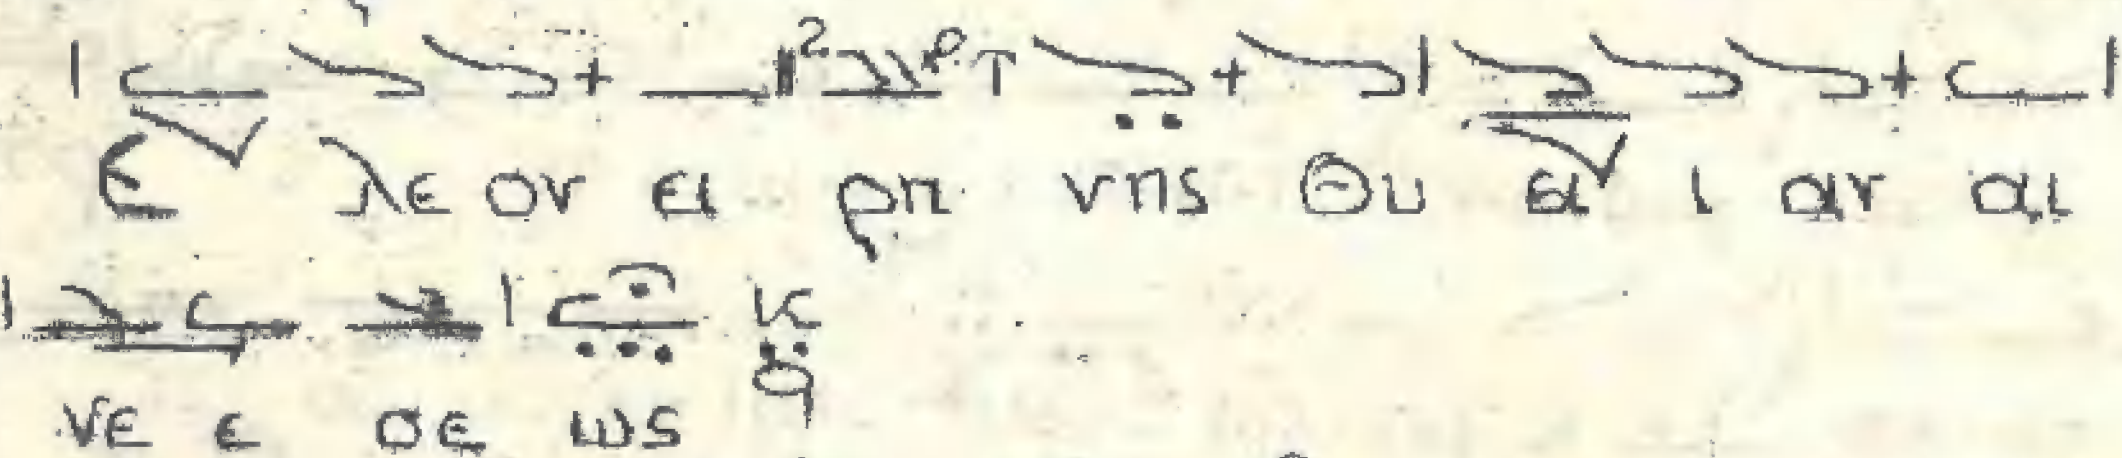 Ε λε ον ει ρη νης Θυ σι ι αν αι
νε ε σε ως